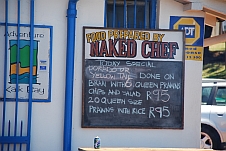 Adventure
Kalk Bay
FOOD PREPARED BY
NAKED CHEF
TODAY SPECIAL
YELLOW TAIL DONE ON
BRAAI WITH 2 QUEEN PRAWNS
CHIPS AND SALAD R95
20 QUEEN SIZE
PRAWNS WITH RICE R95